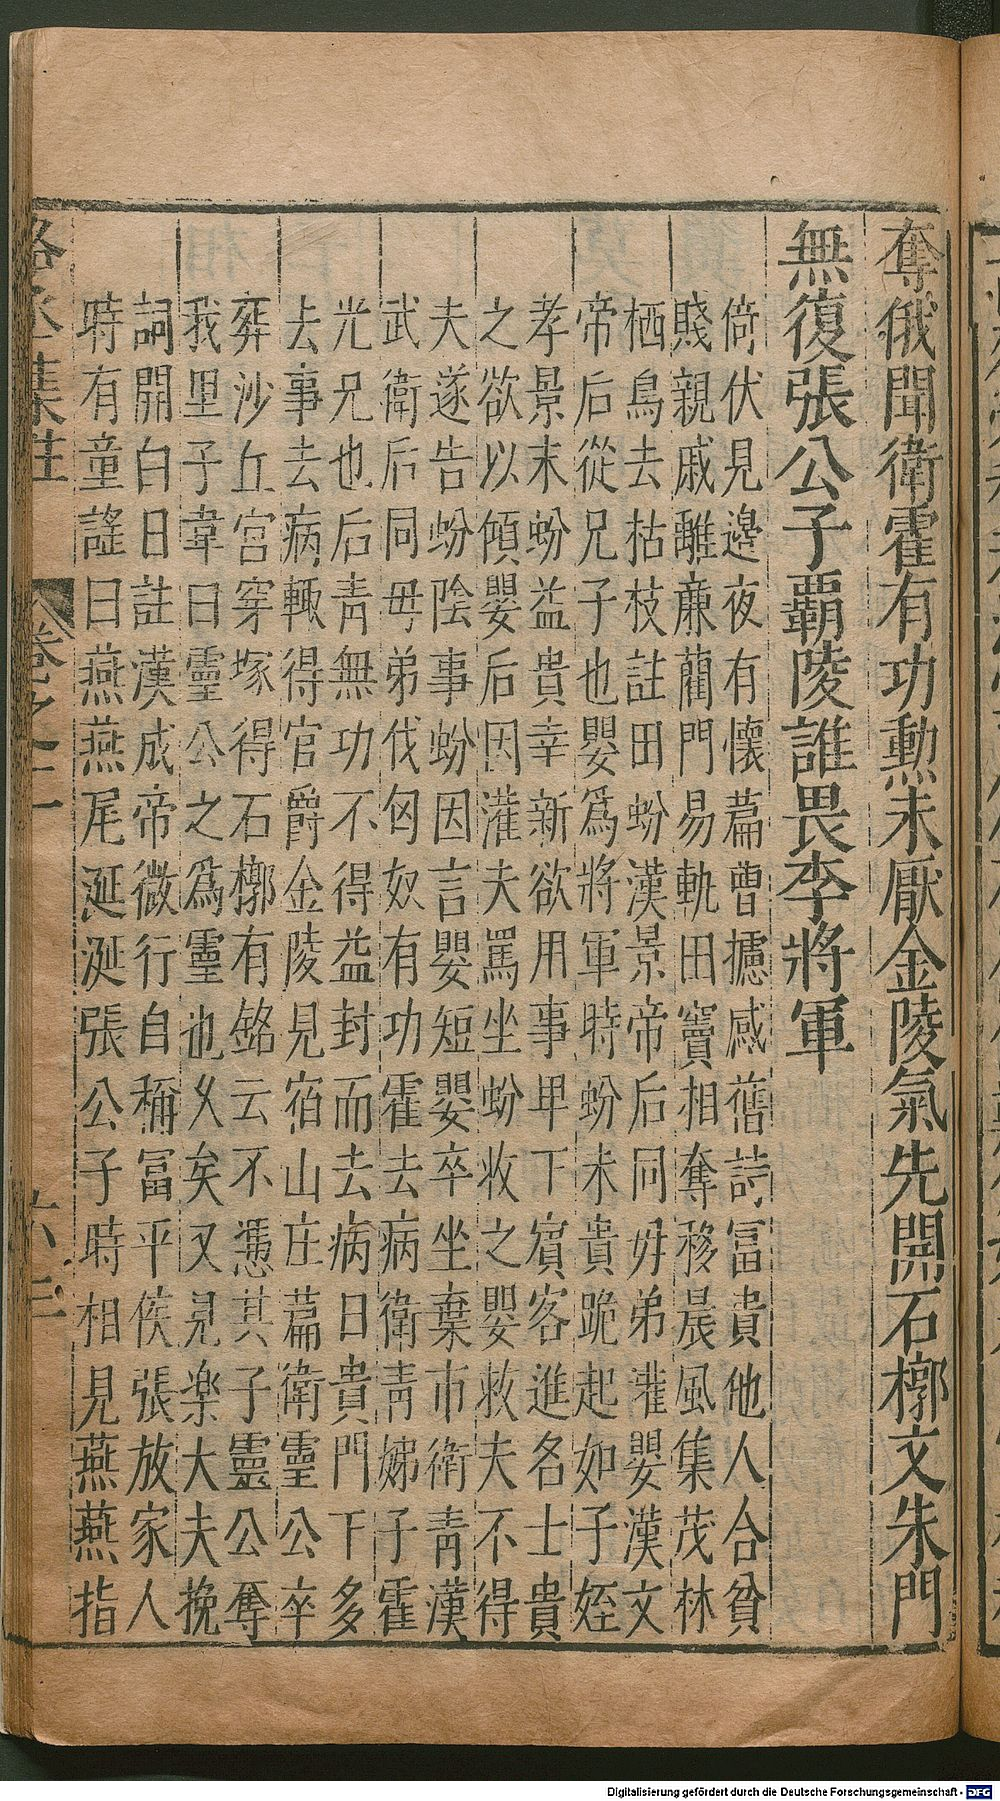 奪俄聞衛霍有功勲未厭金陵氣先開石槨文朱門
無復張公子覇陵誰畏李將軍
倚伏見邊夜有懷篇曹攄感舊詩冨貴他人合貧
賤親戚離廉藺門易軌田竇相奪移晨風集茂林
栖鳥去枯枝註田蚡漢景帝后同母弟灌嬰漢文
帝后從兄子也嬰爲將軍時蚡未貴跪起如子姪
孝景末蚡益貴幸新欲用事甲下賔客進名士貴
之欲以傾嬰后因灌夫罵坐蚡收之嬰救夫不得
夫遂告蚡陰事蚡因言嬰短嬰卒坐棄市衛青漢
武衛后同毋弟伐匈奴有功霍去病衛青娣子霍
光兄也后青無功不得益封而去病日貴門下多
去事去病輙得官爵金陵見宿山庄篇衛靈公卒
葬沙丘宮穿塚得石槨有銘云不憑其子靈公奪
我里子韋曰靈公之爲靈也乆矣又見楽大夫挽
詞開白日註漢成帝微行自稱冨平侯張放家人
時有童謡曰燕燕尾涎涎張公子時相見燕燕指
卷之二
六三
Digitalisierung gefördert durch die Deutsche Forschungsgemeinschaft - DFG